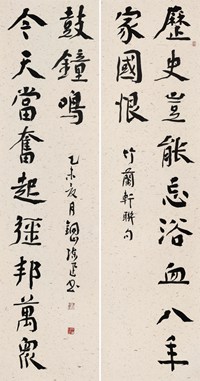 歷史豈能忘浴血八年
家國恨
竹蘭軒聯句
今天當奮起彊邦萬衆
鼓鐘鳴
乙未夏月